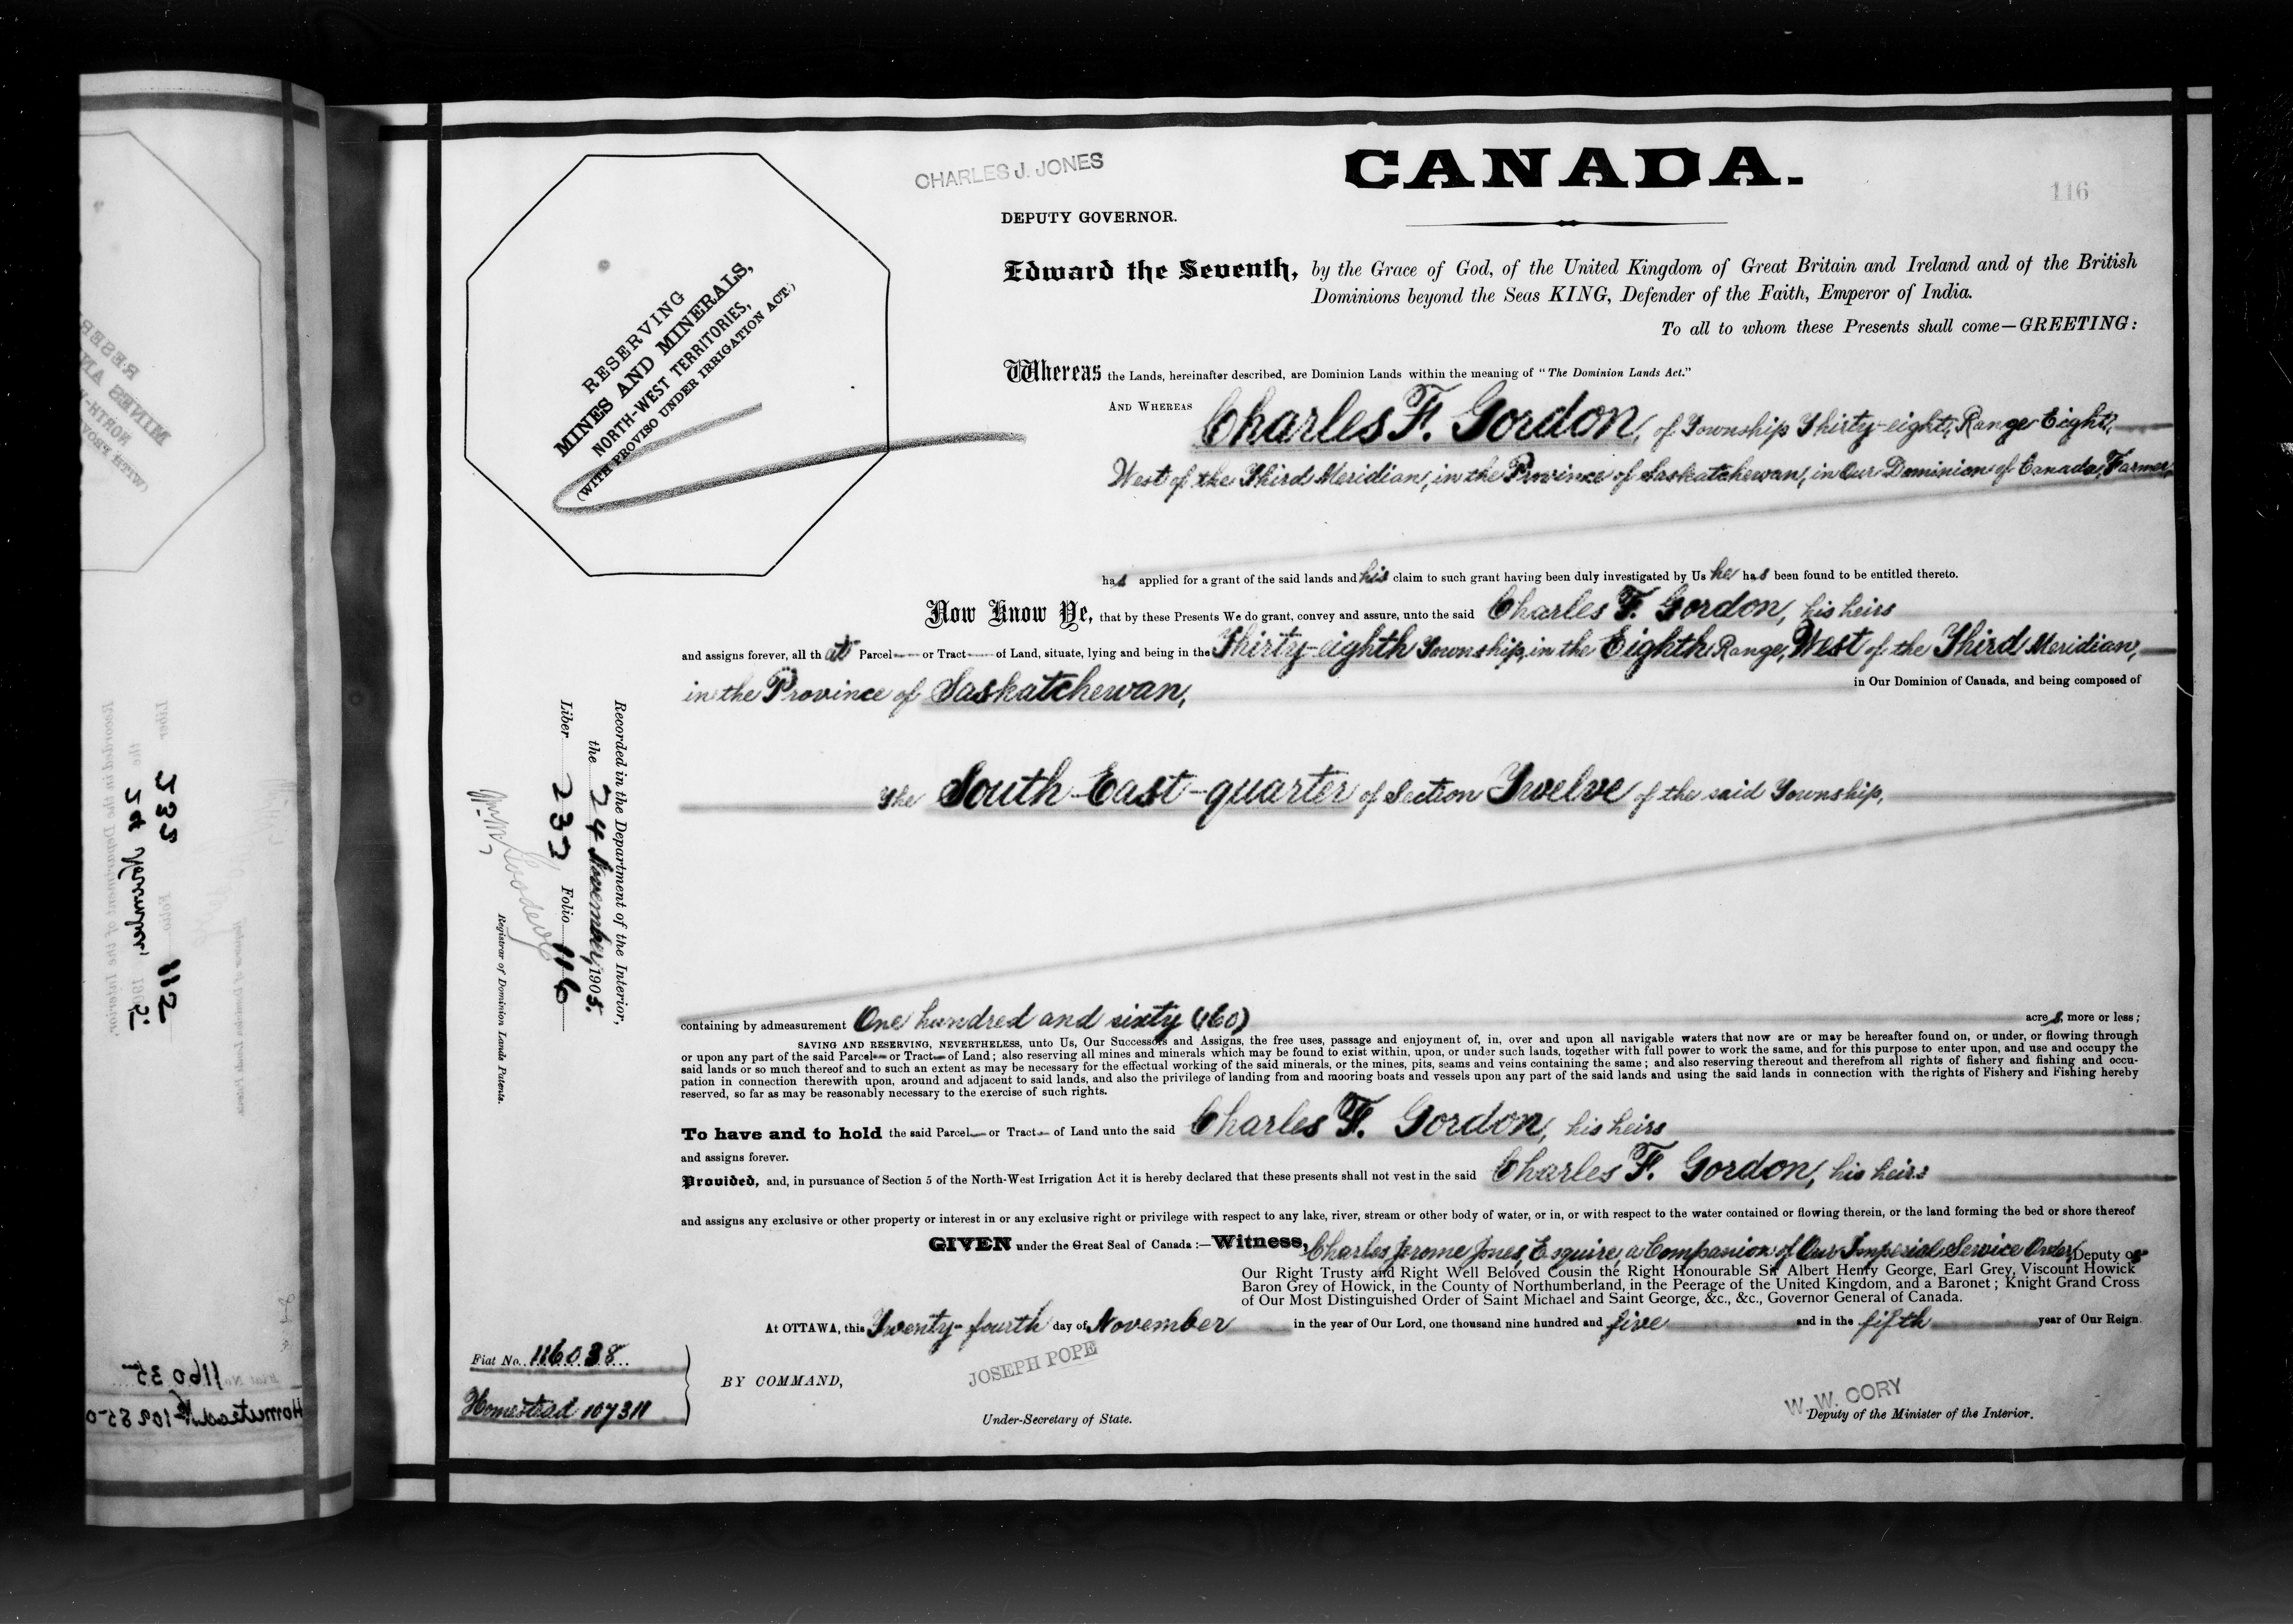 CHARLES J. JONES
CANADA.
116
DEPUTY GOVERNOR.
RESERVING
MINES AND MINERALS,
NORTH-WEST TERRITORIES,
(WITH PROVISO UNDER IRRIGATION ACT.)
Edward the Seventh, by the Grace of God, of the United Kingdom of Great Britain and Ireland and of the British
Dominions beyond the Seas KING, Defender of the Faith, Emperor of India.
To all to whom these Presents shall come—GREETING:
Whereas the Lands, hereinafter described, are Dominion Lands within the meaning of "The Dominion Lands Act."
AND WHEREAS Charles F. Gordon, of Township Thirty-eight, Range Eight,
West of the Third Meridian, in the Province of Saskatchewan, in Our Dominion of Canada, Farmer,
has applied for a grant of the said lands and his claim to such grant having been duly investigated by Us he has been found to be entitled thereto.
Now Know Ye, that by these Presents We do grant, convey and assure, unto the said Charles F. Gordon, his heirs
and assigns forever, all that Parcel or Tract of Land, situate, lying and being in the Thirty-eighth Township, in the Eighth Range, West of the Third Meridian,
in the Province of Saskatchewan, in Our Dominion of Canada, and being composed of
The South East-quarter of Section Twelve of the said Township,
Recorded in the Department of the Interior,
the 24 November, 1905.
Liber 232 Folio 116
Registrar of Dominion Lands Patents.
containing by admeasurement One hundred and sixty (160) acres, more or less;
SAVING AND RESERVING, NEVERTHELESS, unto Us, Our Successors and Assigns, the free uses, passage and enjoyment of, in, over and upon all navigable waters that now are or may be hereafter found on, or under, or flowing through
or upon any part of the said Parcel or Tract of Land; also reserving all mines and minerals which may be found to exist within, upon, or under such lands, together with full power to work the same, and for this purpose to enter upon, and use and occupy the
said lands or so much thereof and to such an extent as may be necessary for the effectual working of the said minerals, or the mines, pits, seams and veins containing the same; and also reserving thereout and therefrom all rights of fishery and fishing and occu-
pation in connection therewith upon, around and adjacent to said lands, and also the privilege of landing from and mooring boats and vessels upon any part of the said lands and using the said lands in connection with the rights of Fishery and Fishing hereby
reserved, so far as may be reasonably necessary to the exercise of such rights.
To have and to hold the said Parcel or Tract of Land unto the said Charles F. Gordon, his heirs
and assigns forever.
Provided, and, in pursuance of Section 5 of the North-West Irrigation Act it is hereby declared that these presents shall not vest in the said Charles F. Gordon, his heirs
and assigns any exclusive or other property or interest in or any exclusive right or privilege with respect to any lake, river, stream or other body of water, or in, or with respect to the water contained or flowing therein, or the land forming the bed or shore thereof
GIVEN under the Great Seal of Canada:—Witness, Charles Jerome Jones, Esquire, a Companion of Our Imperial Service Order, Deputy of
Our Right Trusty and Right Well Beloved Cousin the Right Honourable Sir Albert Henry George, Earl Grey, Viscount Howick
Baron Grey of Howick, in the County of Northumberland, in the Peerage of the United Kingdom, and a Baronet; Knight Grand Cross
of Our Most Distinguished Order of Saint Michael and Saint George, &c., &c., Governor General of Canada.
At OTTAWA, this Twenty-fourth day of November in the year of Our Lord, one thousand nine hundred and five and in the fifth year of Our Reign.
Fiat No. 116038
Homestead 107311
BY COMMAND,
JOSEPH POPE
Under-Secretary of State.
W. W. CORY
Deputy of the Minister of the Interior.